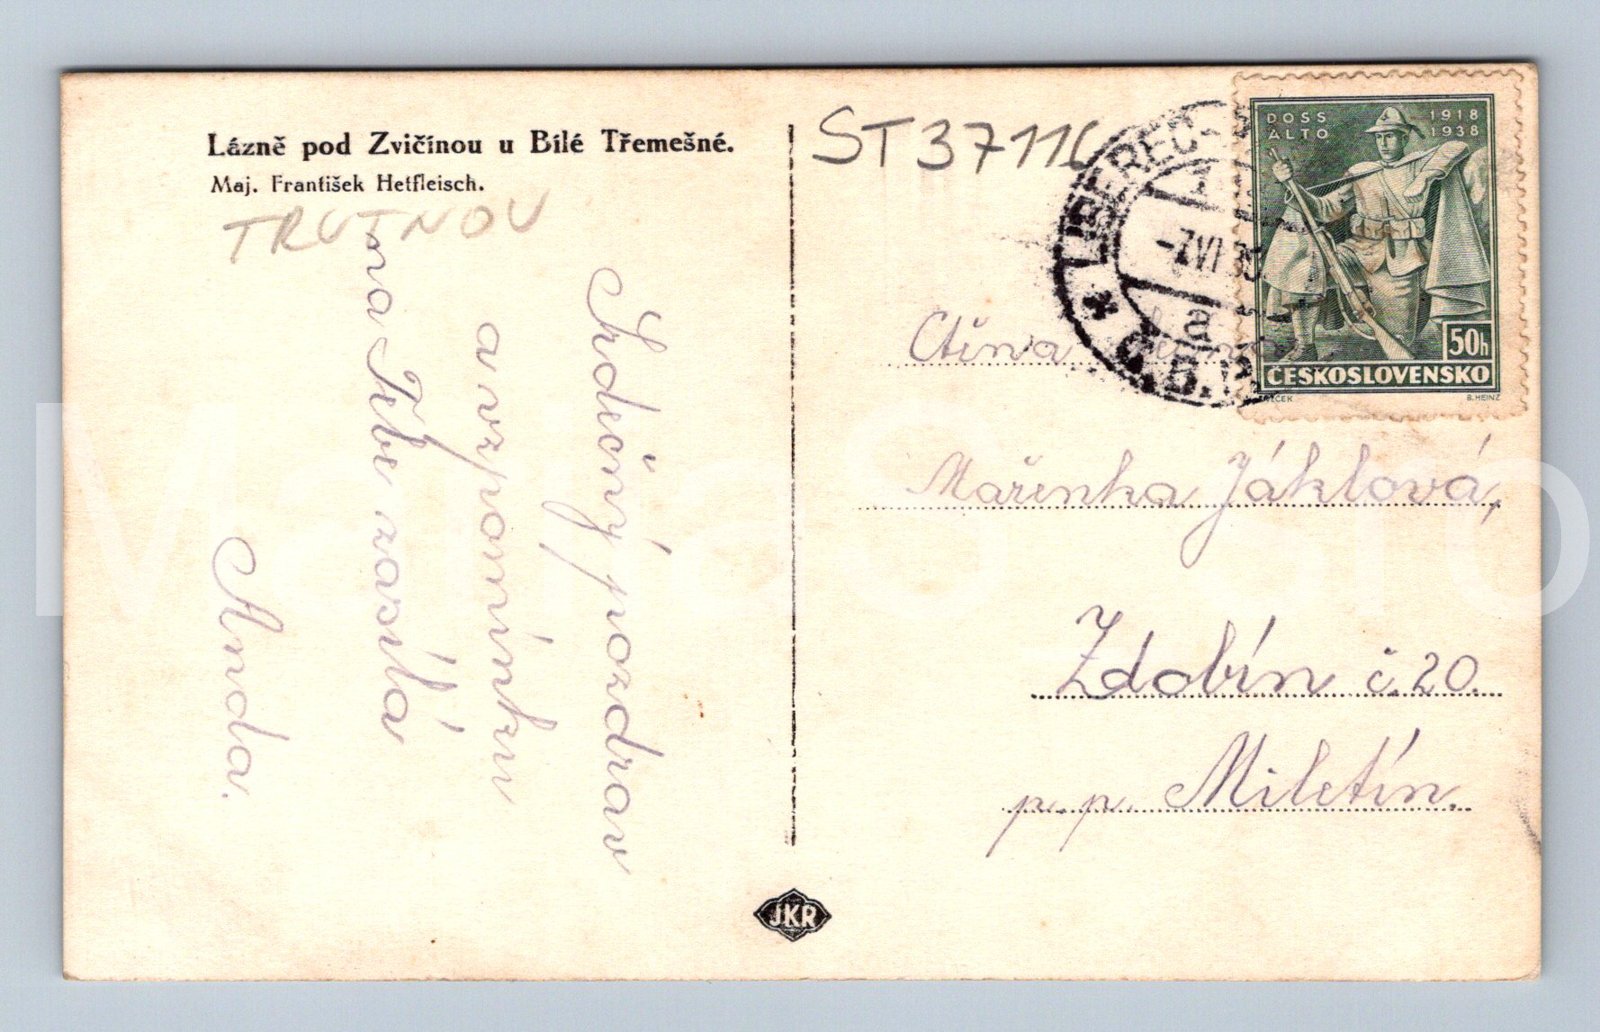 Lázně pod Zvičínou u Bílé Třemešné.
Maj. František Hetfleisch.
TRUTNOV
Srdečný pozdrav
a vzpomínku
na Tebe zasílá
Anda.
JKR
ST37116
LIBEREC
-7.VI.38
a
DOSS ALTO
1918
1938
50h
ČESKOSLOVENSKO
B. HEINZ
Ctěna
Mařenka Jáklová,
Zdobín č. 20.
p. p. Miletín.